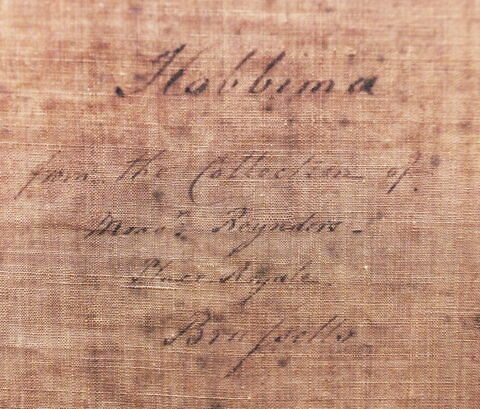 Hobbima
from the Collection of
Reynders -
Place Royale
Brufsells